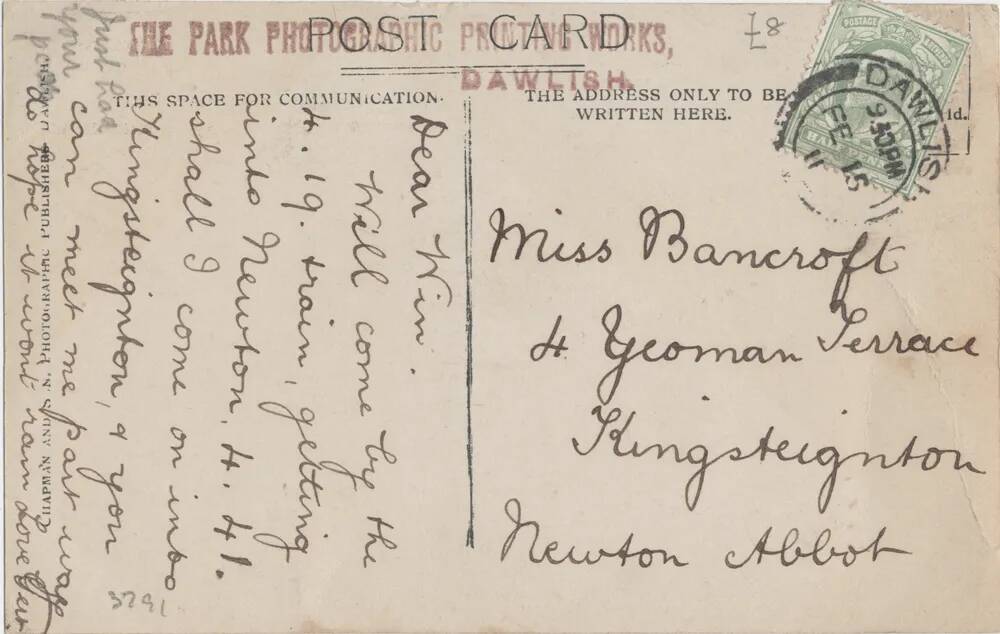 POST CARD
THE PARK PHOTOGRAPHIC PRINTING WORKS,
DAWLISH.
£8
THIS SPACE FOR COMMUNICATION.
THE ADDRESS ONLY TO BE
WRITTEN HERE.
POSTAGE
1d.
DAWLISH
9 30PM
FE 15
11
Dear Win.
Will come by the
4.19. train, getting
into Newton, 4.41.
shall I come on into
Kingsteignton, & you
can meet me part way
do hope it wont rain Love Gert
Just had
your
pc
Miss Bancroft
4 Yeoman Terrace
Kingsteignton
Newton Abbot
PHOTOGRAPHIC PUBLISHERS DAWLISH.
CHAPMAN AND
3291